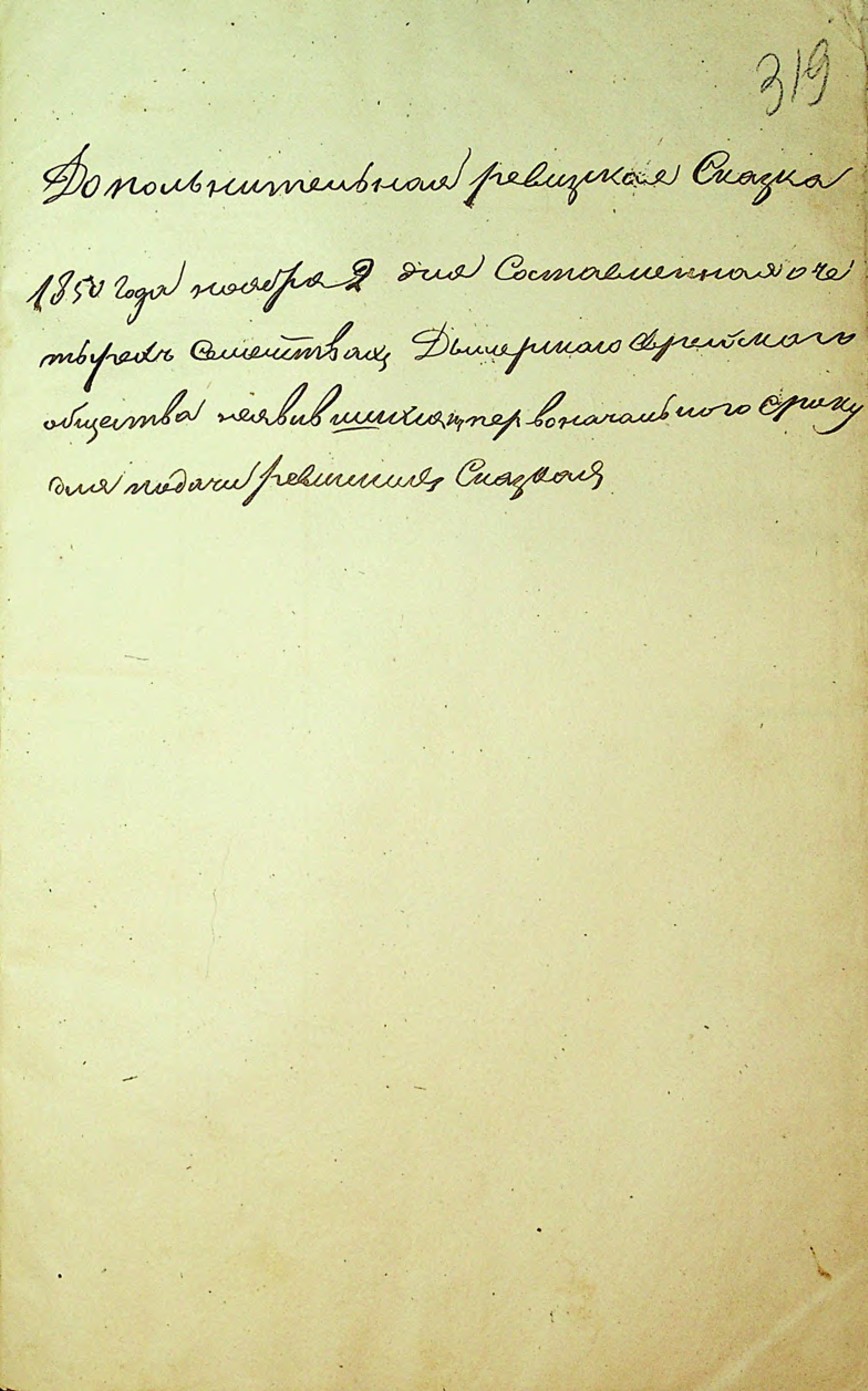 319
Допольнительная ревизкая Сказка
1850 года ноября 2 дня Составленная о че
тырехъ Семействахъ Дымерскаго Еврейскаго
общества неявившихся къ первоначального сроку
для подачи ревизкихъ Сказкахъ